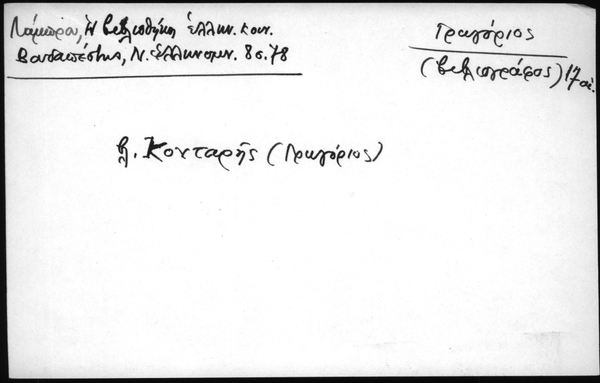 Λάμπρου, Ἡ βιβλιοθήκη ἑλλην. κοιν.
Βουδαπέστης, Ν. Ἑλληνομν. 8 σ. 78
Γρηγόριος
(βιβλιογράφος) 17 αἰ.
βλ. Κονταρῆς (Γρηγόριος)